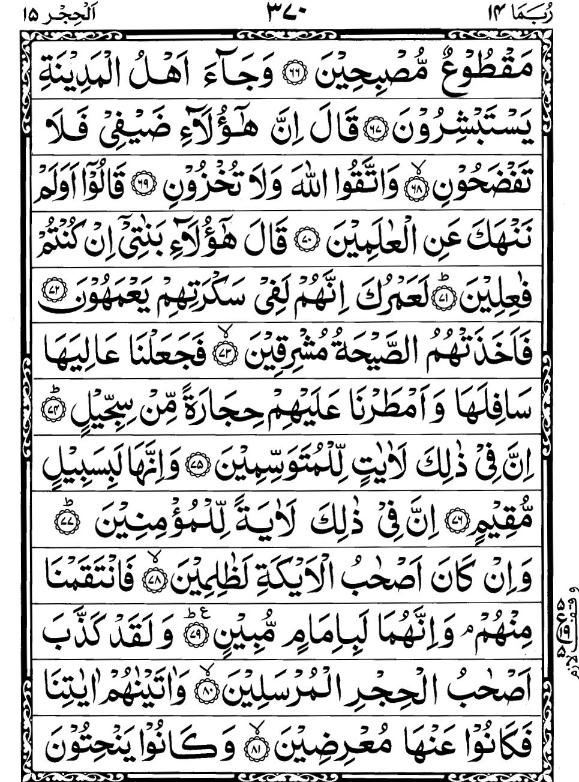 رُبَمَا ١٤ ٣٧٠ اَلْحِجْر ١٥
مَقْطُوْعٌ مُّصْبِحِيْنَ ۝۶۶ وَجَآءَ اَهْلُ الْمَدِيْنَةِ
يَسْتَبْشِرُوْنَ ۝۶۷ قَالَ اِنَّ هٰٓؤُلَآءِ ضَيْفِيْ فَلَا
تَفْضَحُوْنِ ۝۶۸ۙ وَاتَّقُوا اللّٰهَ وَلَا تُخْزُوْنِ ۝۶۹ قَالُوْٓا اَوَلَمْ
نَنْهَكَ عَنِ الْعٰلَمِيْنَ ۝۷۰ قَالَ هٰٓؤُلَآءِ بَنٰتِيْٓ اِنْ كُنْتُمْ
فٰعِلِيْنَ ۝۷۱ؕ لَعَمْرُكَ اِنَّهُمْ لَفِيْ سَكْرَتِهِمْ يَعْمَهُوْنَ ۝۷۲
فَاَخَذَتْهُمُ الصَّيْحَةُ مُشْرِقِيْنَ ۝۷۳ۙ فَجَعَلْنَا عَالِيَهَا
سَافِلَهَا وَاَمْطَرْنَا عَلَيْهِمْ حِجَارَةً مِّنْ سِجِّيْلٍ ۝۷۴ؕ
اِنَّ فِيْ ذٰلِكَ لَاٰيٰتٍ لِّلْمُتَوَسِّمِيْنَ ۝۷۵ وَاِنَّهَا لَبِسَبِيْلٍ
مُّقِيْمٍ ۝۷۶ اِنَّ فِيْ ذٰلِكَ لَاٰيَةً لِّلْمُؤْمِنِيْنَ ۝۷۷ؕ
وَاِنْ كَانَ اَصْحٰبُ الْاَيْكَةِ لَظٰلِمِيْنَ ۝۷۸ۙ فَانْتَقَمْنَا
مِنْهُمْ ۘ وَاِنَّهُمَا لَبِاِمَامٍ مُّبِيْنٍ ۝۷۹ؕع وَلَقَدْ كَذَّبَ
اَصْحٰبُ الْحِجْرِ الْمُرْسَلِيْنَ ۝۸۰ۙ وَاٰتَيْنٰهُمْ اٰيٰتِنَا
فَكَانُوْا عَنْهَا مُعْرِضِيْنَ ۝۸۱ۙ وَكَانُوْا يَنْحِتُوْنَ
وقف لازم